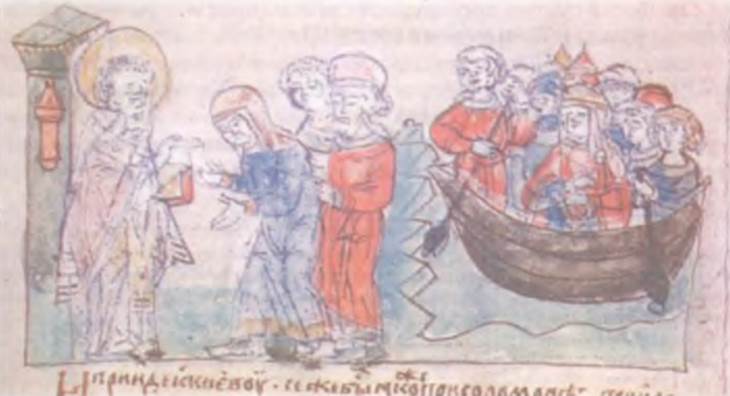 И прииде к киевоу · се же бы ꙗко же при соломанѣ